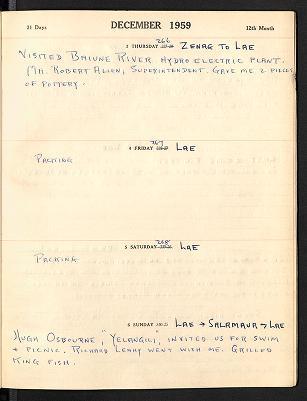 31 Days DECEMBER 1959 12th Month
266
3 THURSDAY ZENAG TO LAE
VISITED BAIUNE RIVER HYDRO ELECTRIC PLANT.
MR. ROBERT ALLEN, SUPERINTENDENT. GAVE ME 2 PIECES
OF POTTERY.
267
4 FRIDAY LAE
PACKING
268
5 SATURDAY LAE
PACKING
6 SUNDAY LAE → SALAMAUA → LAE
HUGH OSBOURNE, "YELANGILI", INVITED US FOR SWIM
+ PICNIC. RICHARD LEAHY WENT WITH ME. GRILLED
KING FISH.